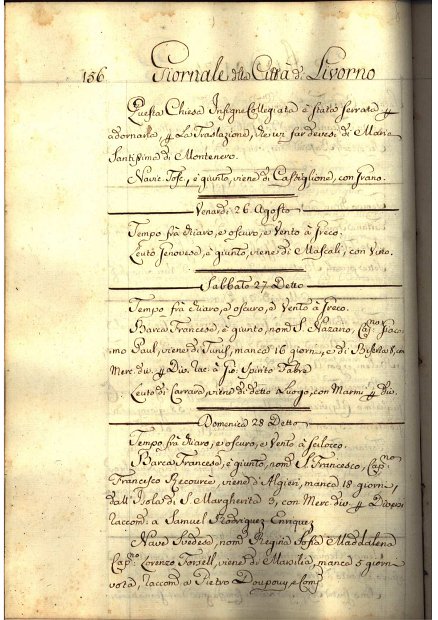 156 Giornale della Città di Livorno
Questa Chiesa Insigne Collegiata è stata serrata p
adornarla, p la Traslazione, che ivi far devesi di Maria
Santissima di Montenero.
Navic. Tosc, è giunto, viene di Castiglione, con Grano.
Venerdì 26. Agosto
Tempo frà chiaro, e oscuro, e Vento à Greco.
Leuto Genovese, è giunto, viene di Mascali, con Vino.
Sabbato 27 Detto
Tempo frà chiaro, e oscuro, e Vento à Greco.
Barca Francese, è giunto, nom. S. Nazario, Cap.no Giaco-
mo Paul, viene di Tunis, manca 16 giorni, e di Biserta 8, con
Merc. div. p Div. rac. à Gio. Spirito Fabre
Leuto di Carrara, viene di detto Luogo, con Marmi p div.
Domenica 28 Detto
Tempo frà chiaro, e oscuro, e Vento à Scilocco.
Barca Francese, è giunto, nom. S. Francesco, Cap.no
Francesco Recource, viene d'Algieri, manca 18 giorni,
dall' Isola di S. Margherita 3, con Merc. div. p Diversi
raccom: a Samuel Rodriguez Enriquez
Nave Svedese, nom. Regina Sofia Maddalena
Cap.no Lorenzo Torsell, viene di Marsilia, manca 5 giorni
vota, raccom. a Pietro Doupouy, e Com.